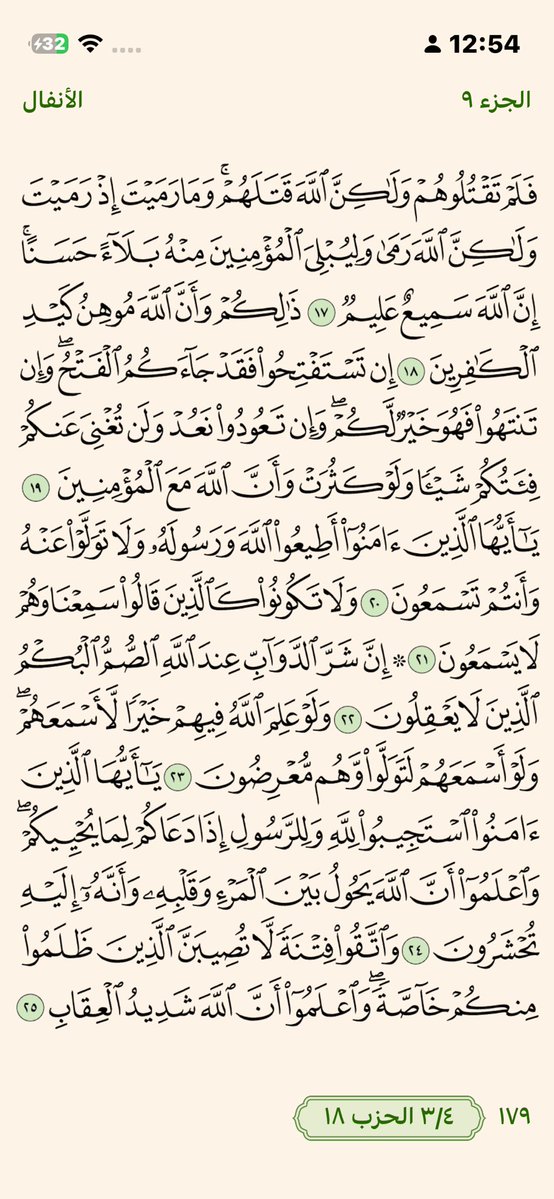 12:54
32
الجزء ٩
الأنفال
فَلَمْ تَقْتُلُوهُمْ وَلَٰكِنَّ ٱللَّهَ قَتَلَهُمْۚ وَمَا رَمَيْتَ إِذْ رَمَيْتَ
وَلَٰكِنَّ ٱللَّهَ رَمَىٰ وَلِيُبْلِيَ ٱلْمُؤْمِنِينَ مِنْهُ بَلَآءً حَسَنًاۚ
إِنَّ ٱللَّهَ سَمِيعٌ عَلِيمٌ ١٧ ذَٰلِكُمْ وَأَنَّ ٱللَّهَ مُوهِنُ كَيْدِ
ٱلْكَٰفِرِينَ ١٨ إِن تَسْتَفْتِحُوا۟ فَقَدْ جَآءَكُمُ ٱلْفَتْحُۖ وَإِن
تَنتَهُوا۟ فَهُوَ خَيْرٌ لَّكُمْۖ وَإِن تَعُودُوا۟ نَعُدْ وَلَن تُغْنِيَ عَنكُمْ
فِئَتُكُمْ شَيْـًٔا وَلَوْ كَثُرَتْ وَأَنَّ ٱللَّهَ مَعَ ٱلْمُؤْمِنِينَ ١٩
يَٰٓأَيُّهَا ٱلَّذِينَ ءَامَنُوٓا۟ أَطِيعُوا۟ ٱللَّهَ وَرَسُولَهُۥ وَلَا تَوَلَّوْا۟ عَنْهُ
وَأَنتُمْ تَسْمَعُونَ ٢٠ وَلَا تَكُونُوا۟ كَٱلَّذِينَ قَالُوا۟ سَمِعْنَا وَهُمْ
لَا يَسْمَعُونَ ٢١ ۞ إِنَّ شَرَّ ٱلدَّوَآبِّ عِندَ ٱللَّهِ ٱلصُّمُّ ٱلْبُكْمُ
ٱلَّذِينَ لَا يَعْقِلُونَ ٢٢ وَلَوْ عَلِمَ ٱللَّهُ فِيهِمْ خَيْرًا لَّأَسْمَعَهُمْۖ
وَلَوْ أَسْمَعَهُمْ لَتَوَلَّوا۟ وَّهُم مُّعْرِضُونَ ٢٣ يَٰٓأَيُّهَا ٱلَّذِينَ
ءَامَنُوا۟ ٱسْتَجِيبُوا۟ لِلَّهِ وَلِلرَّسُولِ إِذَا دَعَاكُمْ لِمَا يُحْيِيكُمْۖ
وَٱعْلَمُوٓا۟ أَنَّ ٱللَّهَ يَحُولُ بَيْنَ ٱلْمَرْءِ وَقَلْبِهِۦ وَأَنَّهُۥٓ إِلَيْهِ
تُحْشَرُونَ ٢٤ وَٱتَّقُوا۟ فِتْنَةً لَّا تُصِيبَنَّ ٱلَّذِينَ ظَلَمُوا۟
مِنكُمْ خَآصَّةًۖ وَٱعْلَمُوٓا۟ أَنَّ ٱللَّهَ شَدِيدُ ٱلْعِقَابِ ٢٥
١٧٩
٣/٤ الحزب ١٨